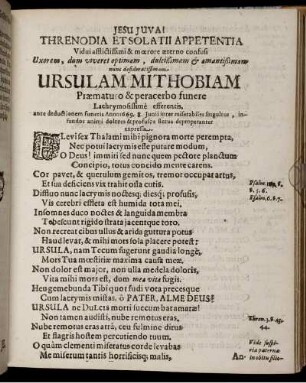 JESU JUVA!
THRENODIA ET SOLATII APPETENTIA
Vidui afflictissimi & mœrore æterno confusi
Uxorem, dum viveret optimam, dulcissimam & amantissimam
nunc
URSULAM MITHOBIAM
Præmaturo & peracerbo funere
Lachrymosissimè efferentis,
ante deductionem funeris Anno 1669. 8 Junii inter miserabiles singultus,
animi dolores & profusos fletus depromptantur
expressa.
FLevi sex Thalami mihi pignora morte perempta,
Nec potui lacrymis esse putare modum,
O Deus! immiti sed nunc pectore planctum
Concipio, totus concido mente carens.
Cor pavet, & querulum gemitos, tremor occupat artus,
Et sua deficiens vix trahit osta cutis.
Diffluo nunc lacrymis noctesq; diesq; profusis,
Vis cerebri effœta est humida tota mei,
Insomnes duco noctes & languida membra
Tabescunt rigido strata jacentque toro.
Non recreat cibus ullus & aridu guttura potus
Haud levat, & mihi mors sola placere potest:
URSULA, nam Tecum fugerunt gaudia longè,
Mors Tua mœstitiæ maxima causa meæ.
Non dolor est major, non ulla medela doloris,
Vita mihi mors est, dum mea vita fugit.
Heu gemebunda Tibi quot fudi vota precesque
Cum lacrymis mistas. ô PATER, ALME DEUS!
URSULA ne Dulcis morti succumbat amatæ!
Non tamen audisti, nube remotus eras,
Nube remotus eras atrâ, ceu fulmine dirus
Et flagris hostem percutiendo tuum.
O quàm clementi miseratus corde levabas
Me miserum tantis horrificisq; malis,
An
Psalm.
8. 5. 6.
Psalm. 6. 8. 7.
Thren. 3. 8. 43.
44.